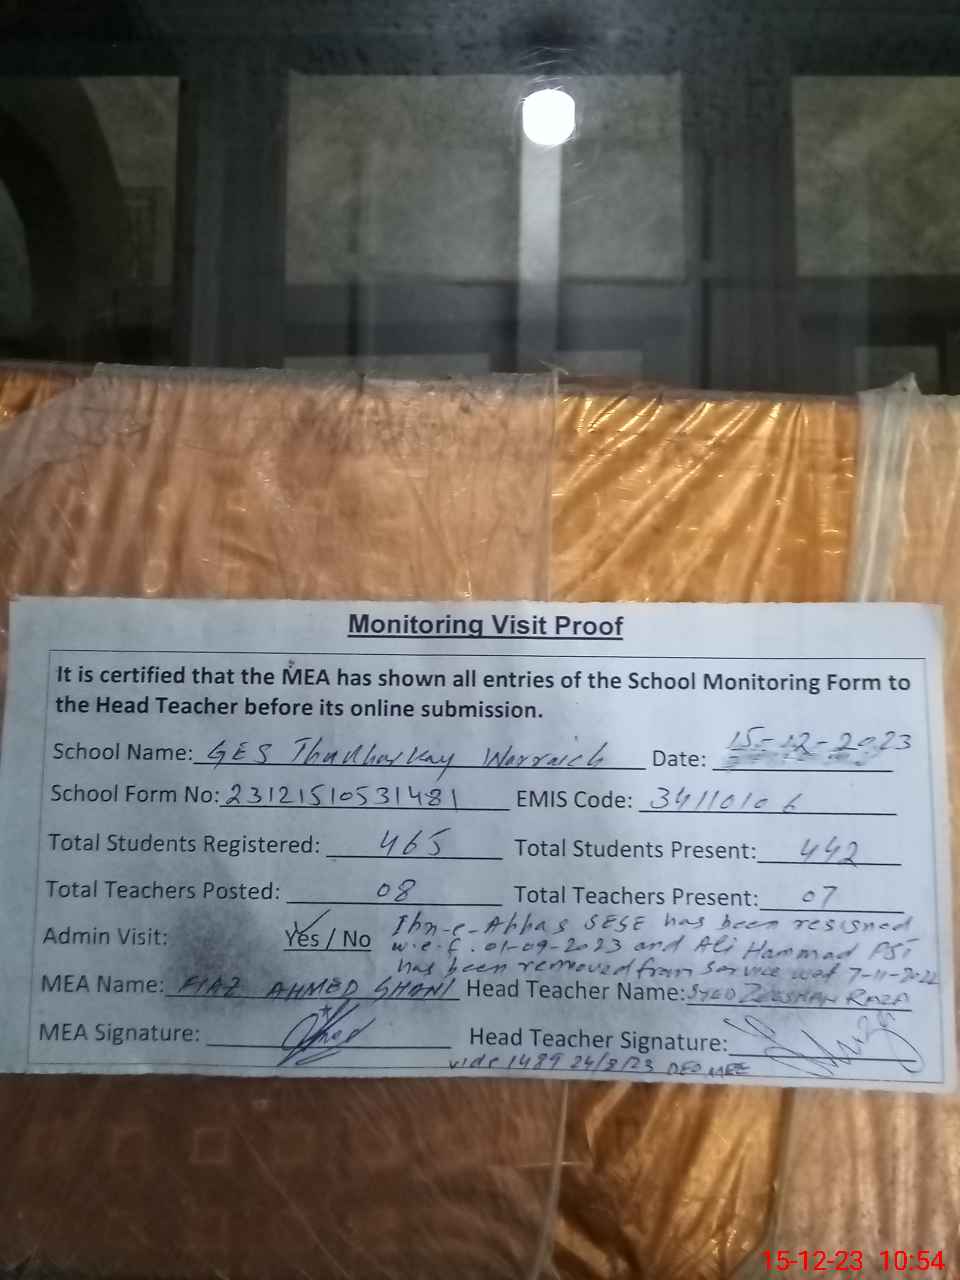 Monitoring Visit Proof
It is certified that the MEA has shown all entries of the School Monitoring Form to
the Head Teacher before its online submission.
School Name: GES Thadharkay Warraich Date: 15-12-2023
School Form No: 23121510531481 EMIS Code: 34110106
Total Students Registered: 465 Total Students Present: 442
Total Teachers Posted: 08 Total Teachers Present: 07
Ibn-e-Abbas SESE has been resigned
Admin Visit: Yes / No w.e.f. 01-09-2023 and Ali Hammad PST
has been removed from Service wef 7-11-2022
MEA Name: FIAZ AHMED GHANI Head Teacher Name: SYED ZEESHAN RAZA
MEA Signature: Head Teacher Signature:
vide 1489 24/8/23 DEO MEE
15-12-23 10:54